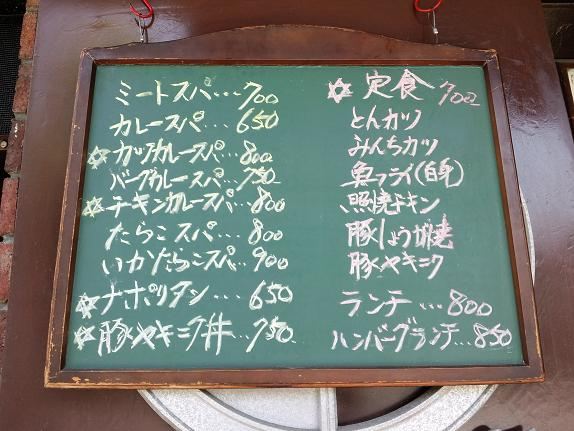 ミートスパ…700
カレースパ…650
☆カツカレースパ…800
バーグカレースパ…750
☆チキンカレースパ…800
たらこスパ…800
いかたらこスパ…900
☆ナポリタン…650
☆豚ヤキニク丼…750
☆定食 700
とんカツ
みんちカツ
魚フライ(白身)
照焼チキン
豚しょうが焼
豚ヤキニク
ランチ…800
ハンバーグランチ…850